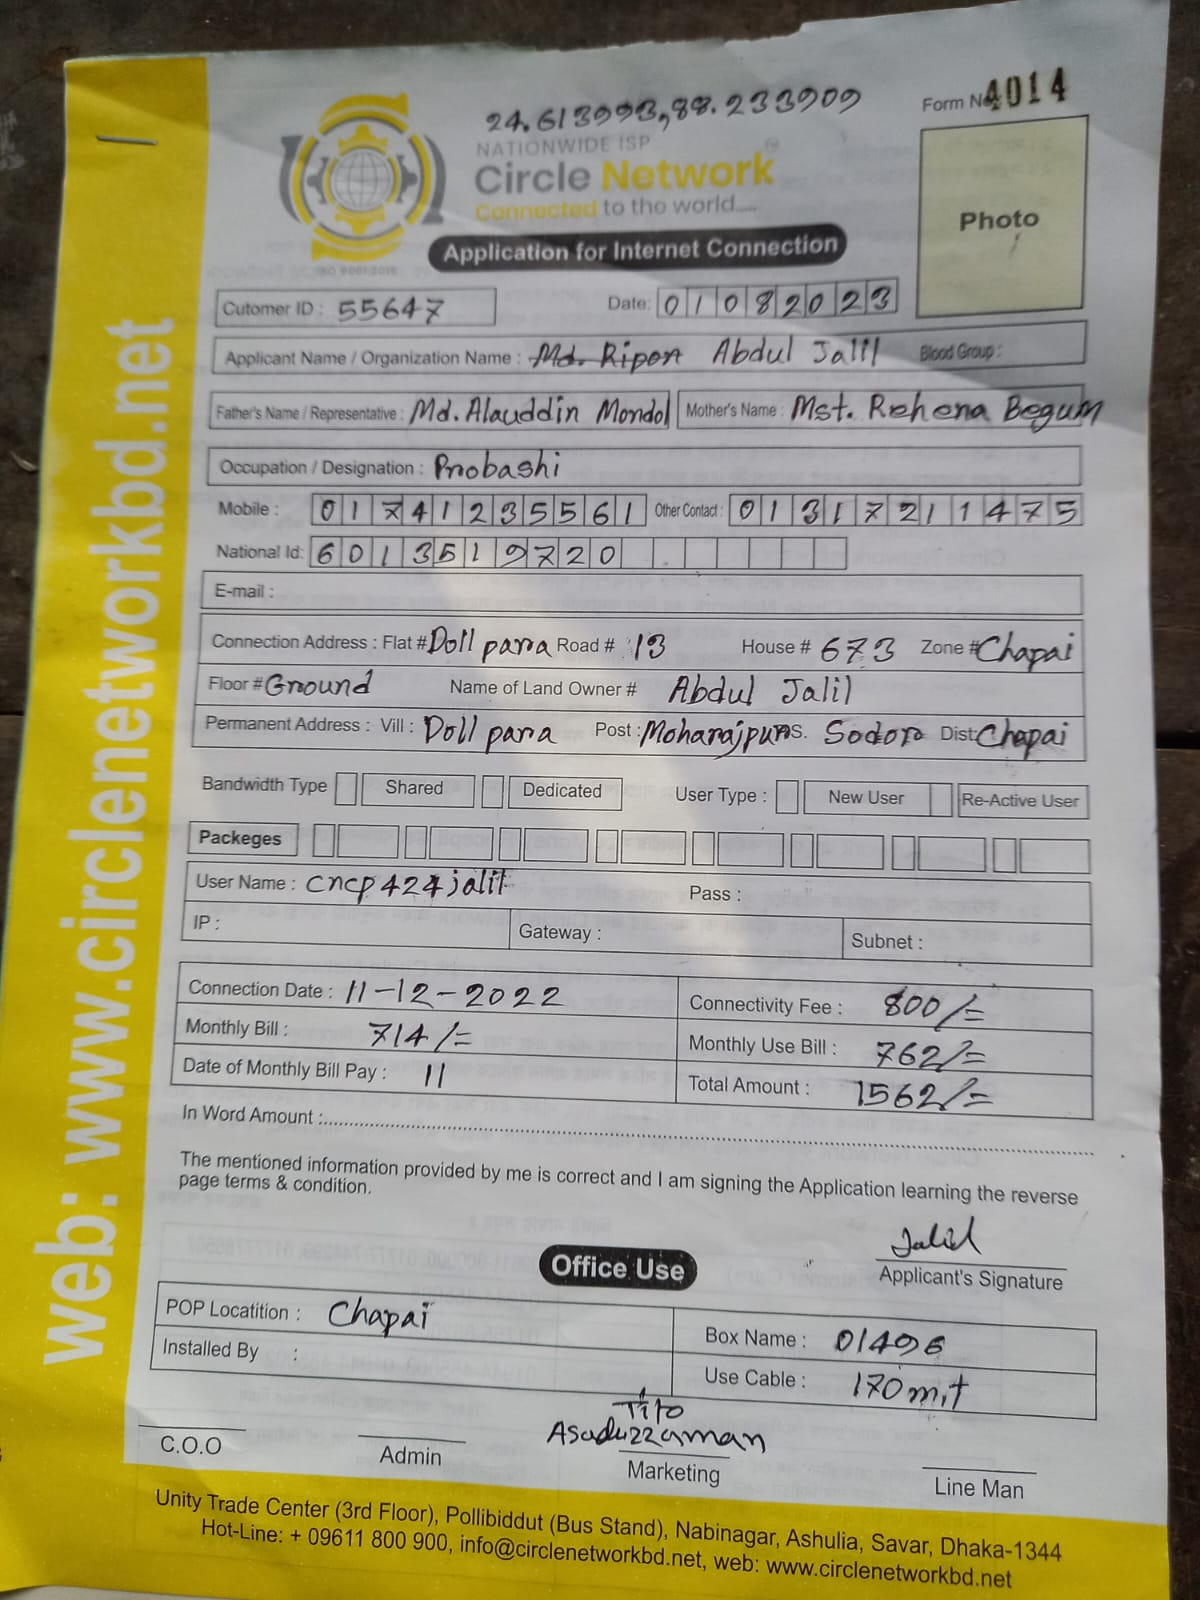 24.613993,88.233909
Form No 4014
NATIONWIDE ISP
Circle Network
Connected to the world.....
Application for Internet Connection
Photo
Cutomer ID : 55647
Date: 01082023
Applicant Name / Organization Name : Md. Ripon Abdul Jalil Blood Group :
Father's Name / Representative : Md. Alauddin Mondol Mother's Name : Mst. Rehena Begum
Occupation / Designation : Probashi
Mobile : 01741235561 Other Contact : 01317211475
National Id: 6013519720
E-mail :
Connection Address : Flat # Doll para Road # 13 House # 673 Zone # Chapai
Floor # Ground Name of Land Owner # Abdul Jalil
Permanent Address : Vill : Doll para Post : Moharajpur S. Sodor Dist: Chapai
Bandwidth Type Shared Dedicated User Type : New User Re-Active User
Packeges
User Name : cncp424jalil Pass :
IP : Gateway : Subnet :
Connection Date : 11-12-2022 Connectivity Fee : 800/=
Monthly Bill : 714/= Monthly Use Bill : 762/=
Date of Monthly Bill Pay : 11 Total Amount : 1562/=
In Word Amount :
The mentioned information provided by me is correct and I am signing the Application learning the reverse
page terms & condition.
Jalil
Applicant's Signature
Office Use
POP Locatition : Chapai Box Name : 01496
Installed By : Use Cable : 170 mit
Tito
Asaduzzaman
C.O.O Admin Marketing Line Man
Unity Trade Center (3rd Floor), Pollibiddut (Bus Stand), Nabinagar, Ashulia, Savar, Dhaka-1344
Hot-Line: + 09611 800 900, info@circlenetworkbd.net, web: www.circlenetworkbd.net
web: www.circlenetworkbd.net